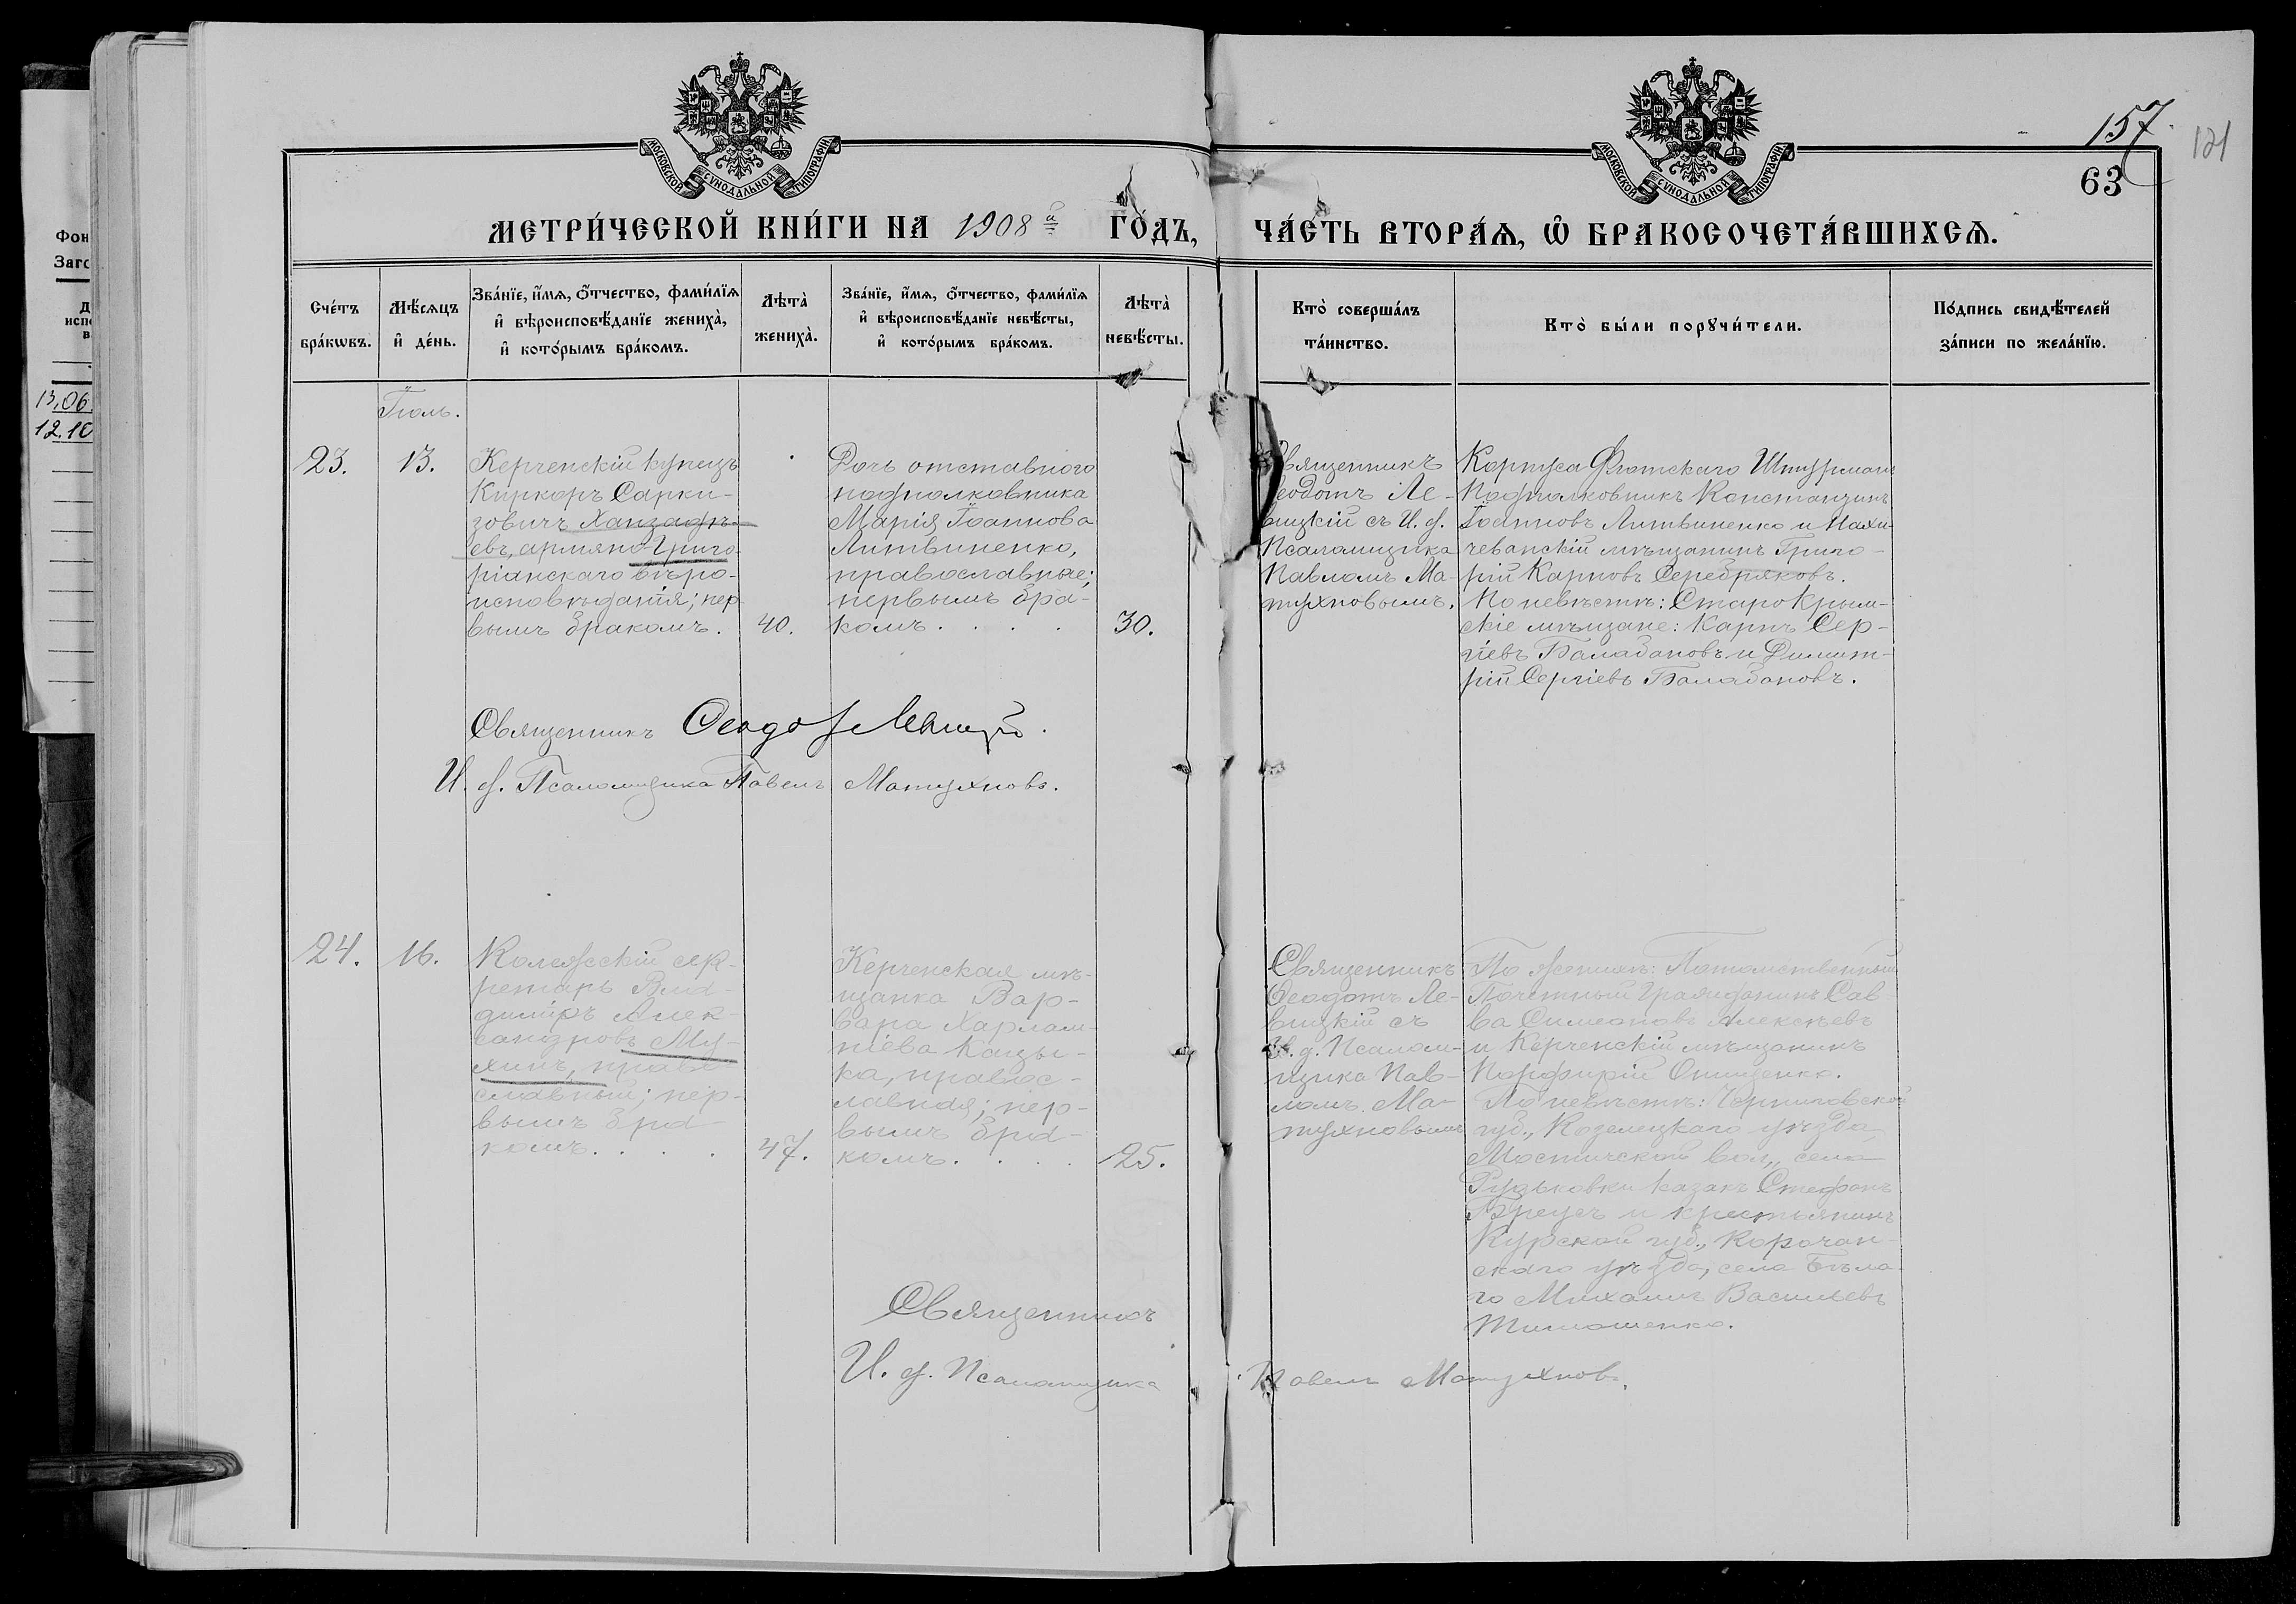 МОСКОВСКОЙ СѴНОДАЛЬНОЙ ТИПОГРАФІИ
МОСКОВСКОЙ СѴНОДАЛЬНОЙ ТИПОГРАФІИ
157.
121
63
МЕТРИ́ЧЕСКОЙ КНИ́ГИ НА 1908й ГО́ДЪ,
ЧА́СТЬ ВТОРА́Ѧ, Ѽ БРАКОСОЧЕТА́ВШИХСѦ.
Фон
Заго
Д
исп
в
13.06.
12.10
Сче́тъ бра́кωвъ.
Мѣ́сѧцъ и҆ де́нь.
Зва́нїе, и҆́мѧ, ѻ҆́тчество, фами́лїѧ
и҆ вѣроисповѣ́данїе жениха̀,
и҆ кото́рымъ бра́комъ.
Лѣта̀ жениха̀.
Зва́нїе, и҆́мѧ, ѻ҆́тчество, фами́лїѧ
и҆ вѣроисповѣ́данїе невѣ́сты,
и҆ кото́рымъ бра́комъ.
Лѣта̀ невѣ́сты.
Кто̀ соверша́лъ
та́инство.
Кто̀ бы́ли порꙋчи́тели.
По́дпись свидѣ́телей
за́писи по жела́нїю.
Іюль.
23.
13.
Керченскій купецъ
Киркоръ Сарки-
зовичъ Ханзадѣ-
евъ, армяно-григо-
ріанскаго вѣро-
исповѣданія; пер-
вымъ бракомъ.
40.
Дочь отставного
подполковника
Марія Іоаннова
Литвиненко,
православные;
первымъ бра-
комъ....
30.
Священникъ
Ѳеодотъ Ле-
вицкій съ И. д.
Псаломщика
Павломъ Ма-
тухновымъ.
Корпуса Флотскаго Штурманъ
Подполковникъ Константинъ
Іоанновъ Литвиненко и Нахи-
чеванскій мѣщанинъ Григо-
рій Карповъ Серебряковъ.
По невѣстѣ: Старо Крым-
скіе мѣщане: Карпъ Сер-
гіевъ Балабановъ и Димит-
рій Сергіевъ Балабановъ.
Священникъ Ѳеодотъ Левицкій.
И. д. Псаломщика Павелъ Матухновъ.
24.
16.
Колежскій сек-
ретарь Вла-
диміръ Алек-
сандровъ Му-
хинъ, право-
славный; пер-
вымъ бра-
комъ....
47.
Керченская мѣ-
щанка Вар-
вара Харлам-
піева Кацы-
ка, правос-
лавная; пер-
вымъ бра-
комъ....
25.
Священникъ
Ѳеодотъ Ле-
вицкій съ
И. д. Псалом-
щика Пав-
ломъ Ма-
тухновымъ
По женихѣ: Потомственный
Почетный Гражданинъ Сав-
ва Симеоновъ Алексѣевъ
и Керченскій мѣщанинъ
Порфирій Онищенко.
По невѣстѣ: Черниговской
губ., Козелецкаго уѣзда,
Мостичской вол., села
Рудьковки казакъ Стефанъ
Бреусъ и крестьянинъ
Курской губ., Корочан-
скаго уѣзда, села Бѣла-
го Михаилъ Васильевъ
Тимошенко.
Священникъ
И. д. Псаломщика Павелъ Матухновъ.